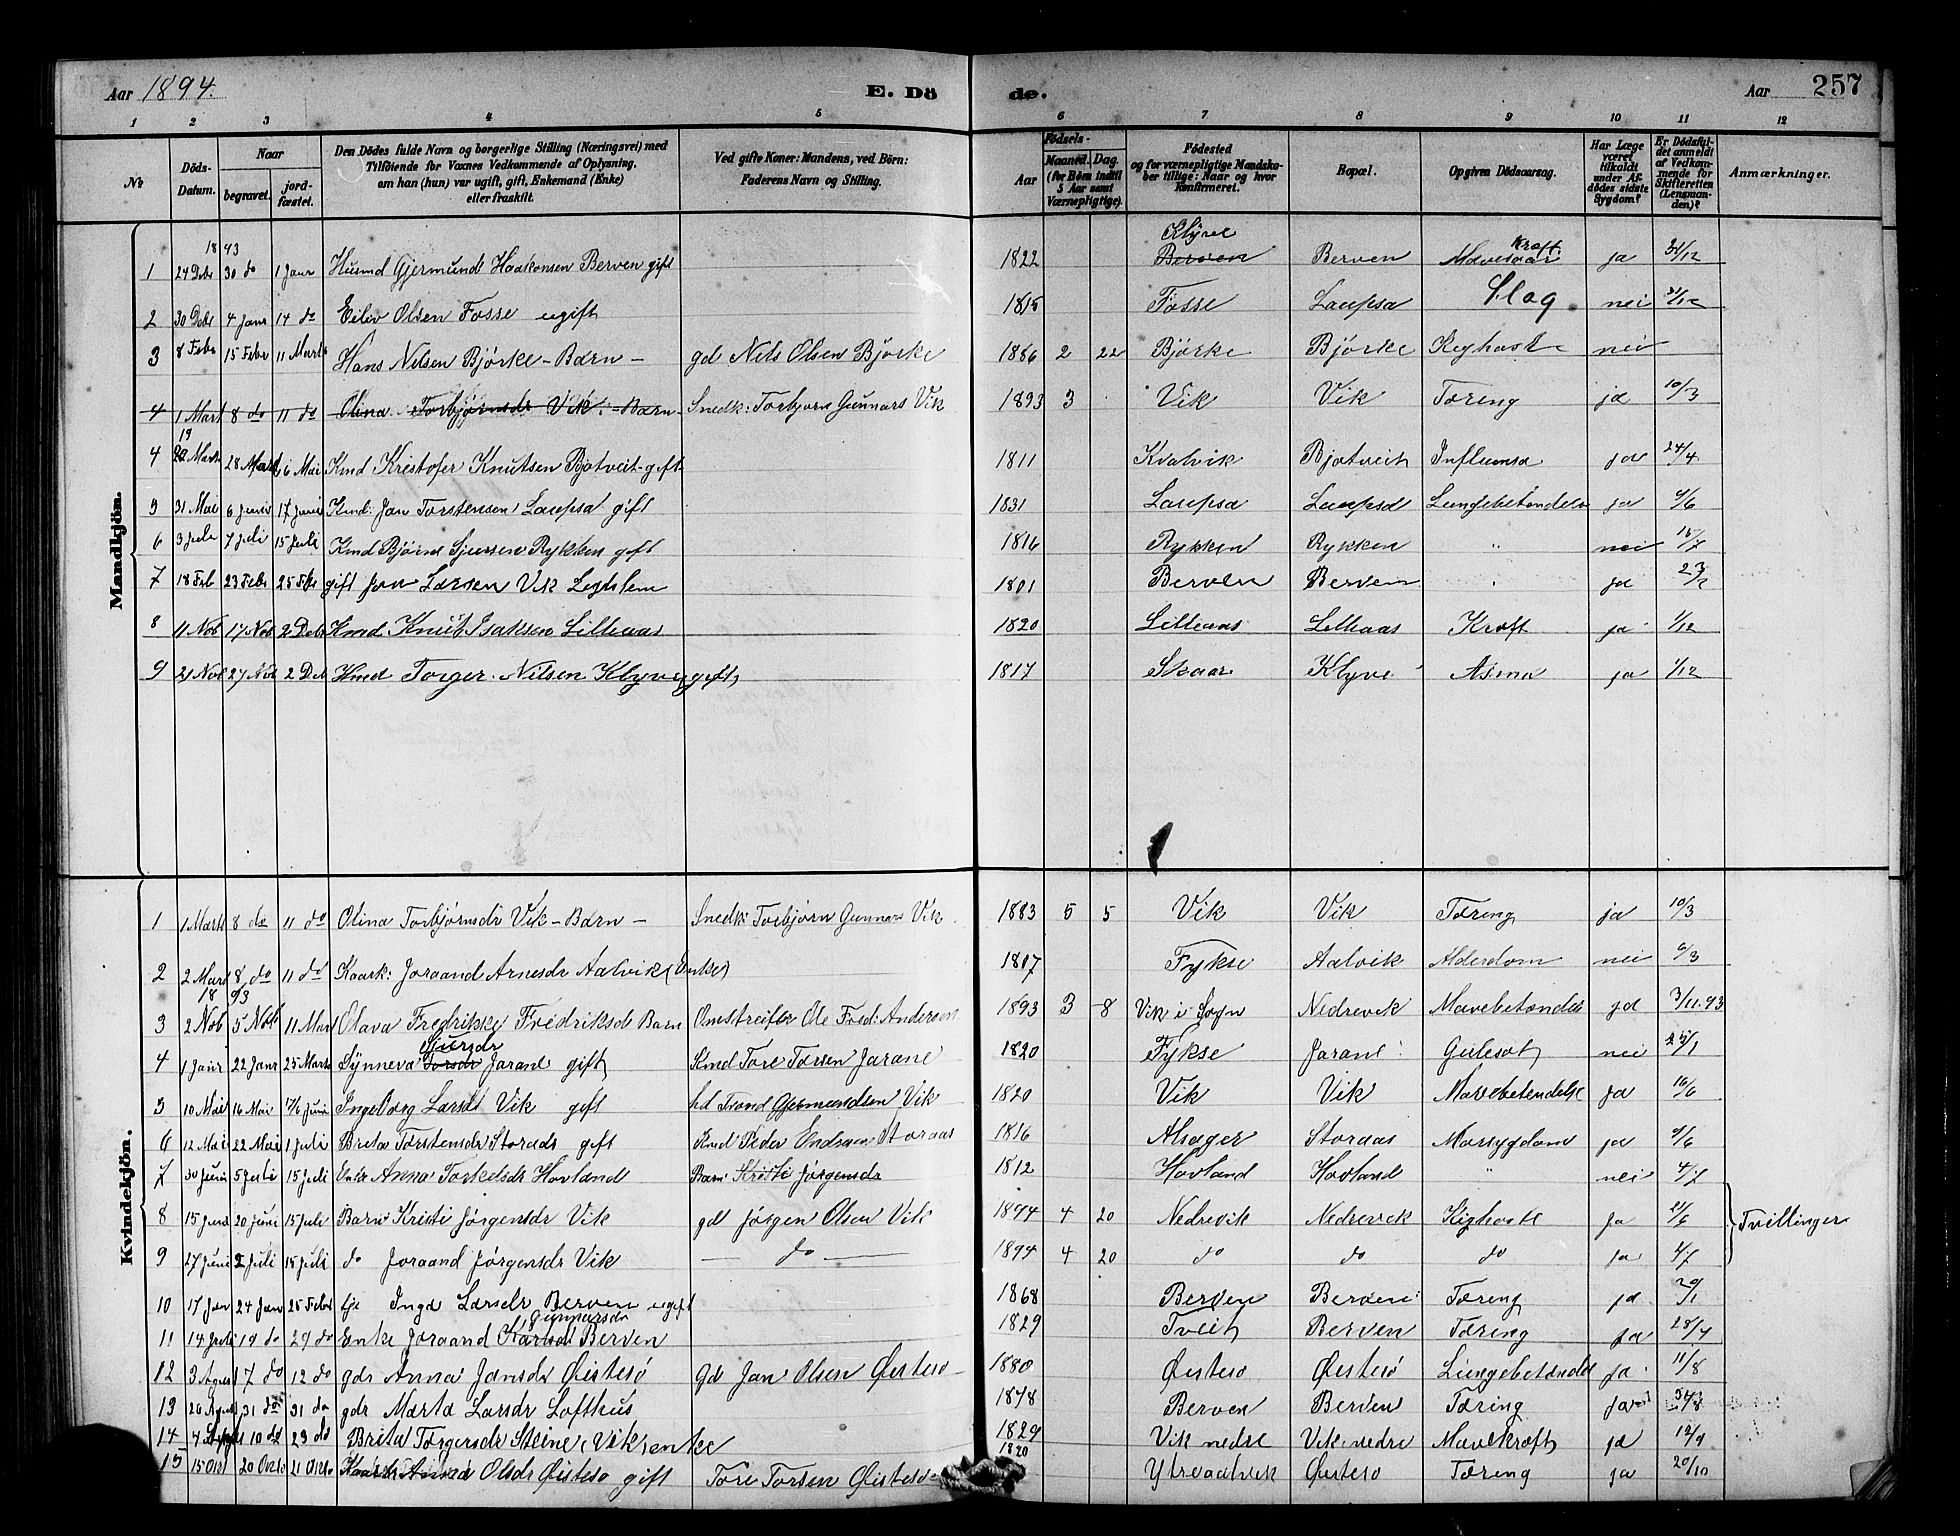 Aar 1894. E. Dö de. Aar 257
1 2 3 4 5 6 7 8 9 10 11 12
No
Döds-Datum.
Naar
begravet.
jord-fæstet.
Den Dödes fulde Navn og borgerlige Stilling (Næringsvei) med
Tilföiende for Voxnes Vedkommende af Oplysning,
om han (hun) var ugift, gift, Enkemand (Enke)
eller fraskilt.
Ved gifte Koner: Mandens, ved Börn:
Faderens Navn og Stilling.
Födsels-
Aar
Maaned. Dag.
(for Börn indtil
5 Aar samt
Værnepligtige).
Födested
og for værnepligtige Mandska-
ber tillige: Naar og hvor
konfirmeret.
Bopæl.
Opgiven Dödsaarsag.
Har Læge
været
tilkaldt
under Af-
dödes sidste
Sygdom?
Er Dödsfal-
det anmeldt
af Vedkom-
mende for
Skifteretten
(Lensman-
den)?
Anmærkninger.
Mandkjön.
1893
1 24 Debr 30 do 1 Janr Husmd Gjermund Haakonsen Berven gift 1822 Berven Klyve Berven Mavesaar Kræft ja 31/12
2 30 Debr 4 Janr 14 do Eiliv Olsen Fosse ugift 1815 Fosse Laupsa Slag nei 31/12
3 8 Febr 15 Febr 11 Marts Hans Nilsen Bjørke - Barn - gd Nils Olsen Bjørke 1886 2 22 Bjørke Bjørke Kighoste nei
4 1 Mart 8 do 11 do Olina Torbjørnsdr Vik - Barn - Snedk: Torbjørn Gunnars Vik 1893 3 Vik Vik Tæring ja 10/3
4 19 Marts 28 Marts 6 Mai Kmd Kristofer Knutsen Bjotveit gift 1811 Kvalvik Bjotveit Influensa ja 24/4
5 31 Mai 6 Juni 17 Juni Kmd: Jan Torstensen Laupsa gift 1831 Laupsa Laupsa Lungebetændelse ja 9/6
6 3 Juli 7 Juli 15 Juli Kmd Bjørn Sjursen Rykken gift 1816 Rykken Rykken " nei 15/7
7 18 Feb 23 Febr 25 Febr gift Jon Larsen Vik 1801 Berven Berven " ja 23/2
8 11 Nov 17 Nov 2 Debr Kmd Knut Isaksen Lilleaas 1820 Lilleaas Lilleaas Kræft ja 1/12
9 21 Nov 27 Nov 2 Deb Kmd Torger Nilsen Klyve (gift) 1817 Skaar Klyve Asma ja 1/12
Kvindekjön.
1 1 Marts 8 do 11 do Olina Torbjørnsdr Vik - Barn - Snedk: Torbjørn Gunnars Vik 1883 5 5 Vik Vik Tæring ja 10/3
2 2 Mart 8 do 11 do Kaark: Joraand Arnesdr Aalvik (Enke) 1807 Fykse Aalvik Alderdom nei 6/3
1893
3 2 Nov 5 Nov 11 Mar Olava Fredrikke Fredriksdr Barn Omstreifer Ole Fredr. Andersen 1893 3 8 Vik i Sogn Nedrevik Mavebetændelse ja 3/11.93
4 1 Janr 22 Janr 25 Marts Synneva Torsdr Sjursdr Jarane gift Kmd Tore Torsen Jarane 1820 Fykse Jarane Gulesot nei 25/1
5 10 Mai 16 Mai 17/6 Juni Ingeborg Larsdr Vik gift Trond Gjermundsen Vik 1820 Vik Vik Mavebetændelse ja 16/6
6 12 Mai 22 Mai 1 Juli Brita Torstensdr Storaas gift Kmd Peder Endresen Storaas 1816 Alsager Storaas Marsygdom ja 9/6
7 30 Juni 5 Juli 15 Juli Enke Anna Torkelsdr Hovland Barn Kristi Jørgensdr 1812 Hovland Hovland " nei 4/7
8 15 Juni 20 Juni 15 Juli Barn Kristi Jørgensdr Vik gd Jørgen Olsen Vik 1894 4 20 Nedrevik Nedrevik Kighoste ja 21/6 Tvillinger
9 27 Juni 2 Juli 15 Juli do Joraand Jørgensdr Vik do 1894 4 20 do do do ja 4/7
10 17 Jan 24 Jan 25 Febr tje Inga Larsdr Berven ugift 1868 Berven Berven Tæring ja 20/1
11 14 Juli 19 do 29 do Enke Joraand Gunnarsdr Berven 1829 Tveit Berven Tæring ja 28/7
12 3 Agust 7 do 12 do gdr Anna Jansdr Østesø Gd Jan Olsen Østesø 1880 Østesø Østesø Lungebetændelse ja 11/8
13 26 Agust 31 do 31 do gdr Marta Larsdr Lofthus 1848 Berven Berven Tæring ja
14 4 10 do 23 do Brita Torgersdr Steine (Vik) enke 1829 Vik nedre Vik nedre Mavekræft ja 12/9
15 15 Okt 20 Okt 21 Okt Anna Olsdr Østesø gift Tore Torsen Østesø 1820 Ytreaalvik Østesø Tæring ja 20/10